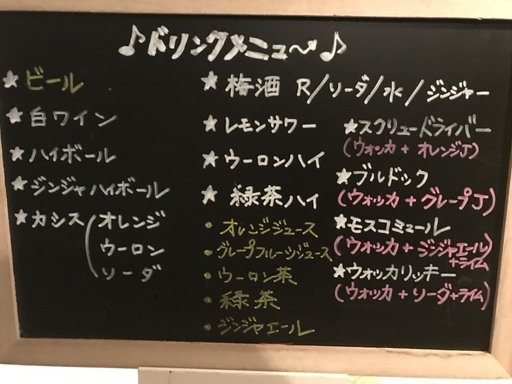 ♪ドリンクメニュ〜♪
★ビール
★白ワイン
★ハイボール
★ジンジャハイボール
★カシス(オレンジ
ウーロン
ソーダ
★梅酒 R/ソーダ/水/ジンジャー
★レモンサワー
★ウーロンハイ
★緑茶ハイ
・オレンジジュース
・グレープフルーツジュース
・ウーロン茶
・緑茶
・ジンジャエール
★スクリュードライバー
(ウォッカ+オレンジJ)
★ブルドック
(ウォッカ+グレープJ)
★モスコミュール
(ウォッカ+ジンジャエール)
+ライム
★ウォッカリッキー
(ウォッカ+ソーダ+ライム)